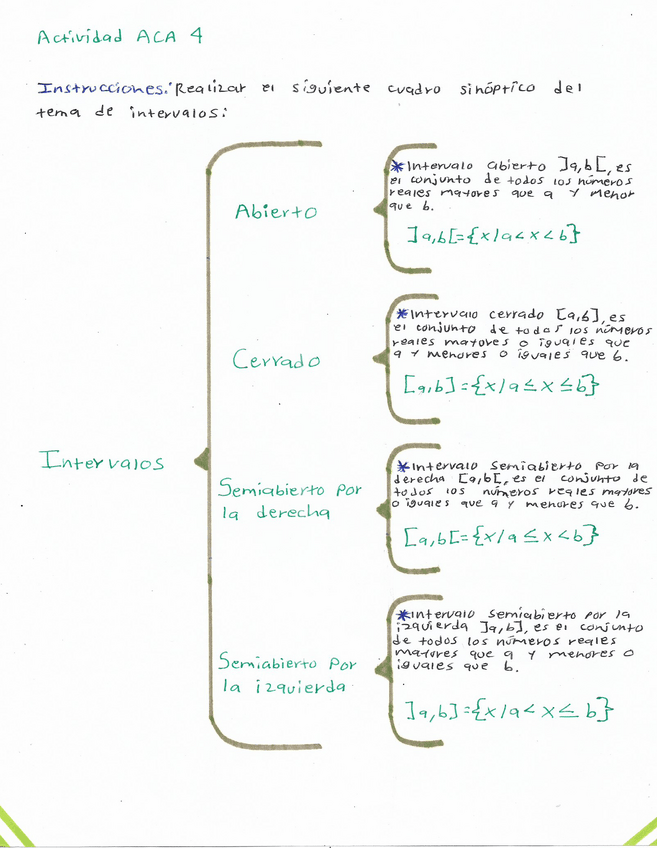 Actividad ACA 4
Instrucciones: Realizar el siguiente cuadro sinóptico del
tema de intervalos:
Intervalos
Abierto
*Intervalo abierto ]a,b[, es
el conjunto de todos los números
reales mayores que a y menor
que b.
]a,b[={x/a<x<b}
Cerrado
*Intervalo cerrado [a,b], es
el conjunto de todos los números
reales mayores o iguales que
a y menores o iguales que b.
[a,b]={x/a≤x≤b}
Semiabierto por
la derecha
*Intervalo semiabierto por la
derecha [a,b[, es el conjunto de
todos los números reales mayores
o iguales que a y menores que b.
[a,b[={x/a≤x<b}
Semiabierto por
la izquierda
*intervalo semiabierto por la
izquierda ]a,b], es el conjunto
de todos los números reales
mayores que a y menores o
iguales que b.
]a,b]={x/a<x≤b}